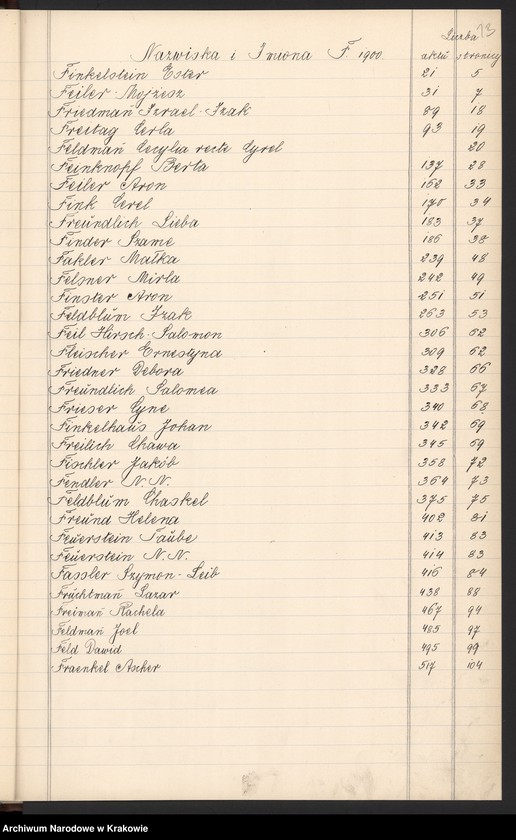 13
Liczba
Nazwiska i Imiona F. 1900. aktu stronicy
Finkelstein Ester 21 5
Feiler Mojżesz 31 7
Friedman Izrael-Izak 89 18
Freitag Perla 93 19
Feldman Cecylia recte Cyrel 20
Feinknopf Berta 137 28
Feiler Aron 162 33
Fink Cerel 170 34
Freundlich Lieba 183 37
Finder Szame 186 38
Fakler Małka 239 48
Felsner Mirla 242 49
Finster Aron 251 51
Feldblum Izak 263 53
Feil Hirsch-Salomon 306 62
Fleischer Ernestyna 309 62
Friedner Debora 328 66
Freundlich Salomea 333 67
Frieser 340 68
Finkelhaus Johan 342 69
Freilich Chawa 345 69
Fischler Jakób 358 72
Fendler N.N. 364 73
Feldblum Chaskel 375 75
Freund Helena 402 81
Feuerstein Taube 413 83
Feuerstein N.N. 414 83
Fassler Szymon-Leib 416 84
Fruchtman Lazar 438 88
Freiman Rachela 467 94
Feldman Joel 485 97
Feld Dawid 495 99
Fraenkel Ascher 517 104
Archiwum Narodowe w Krakowie